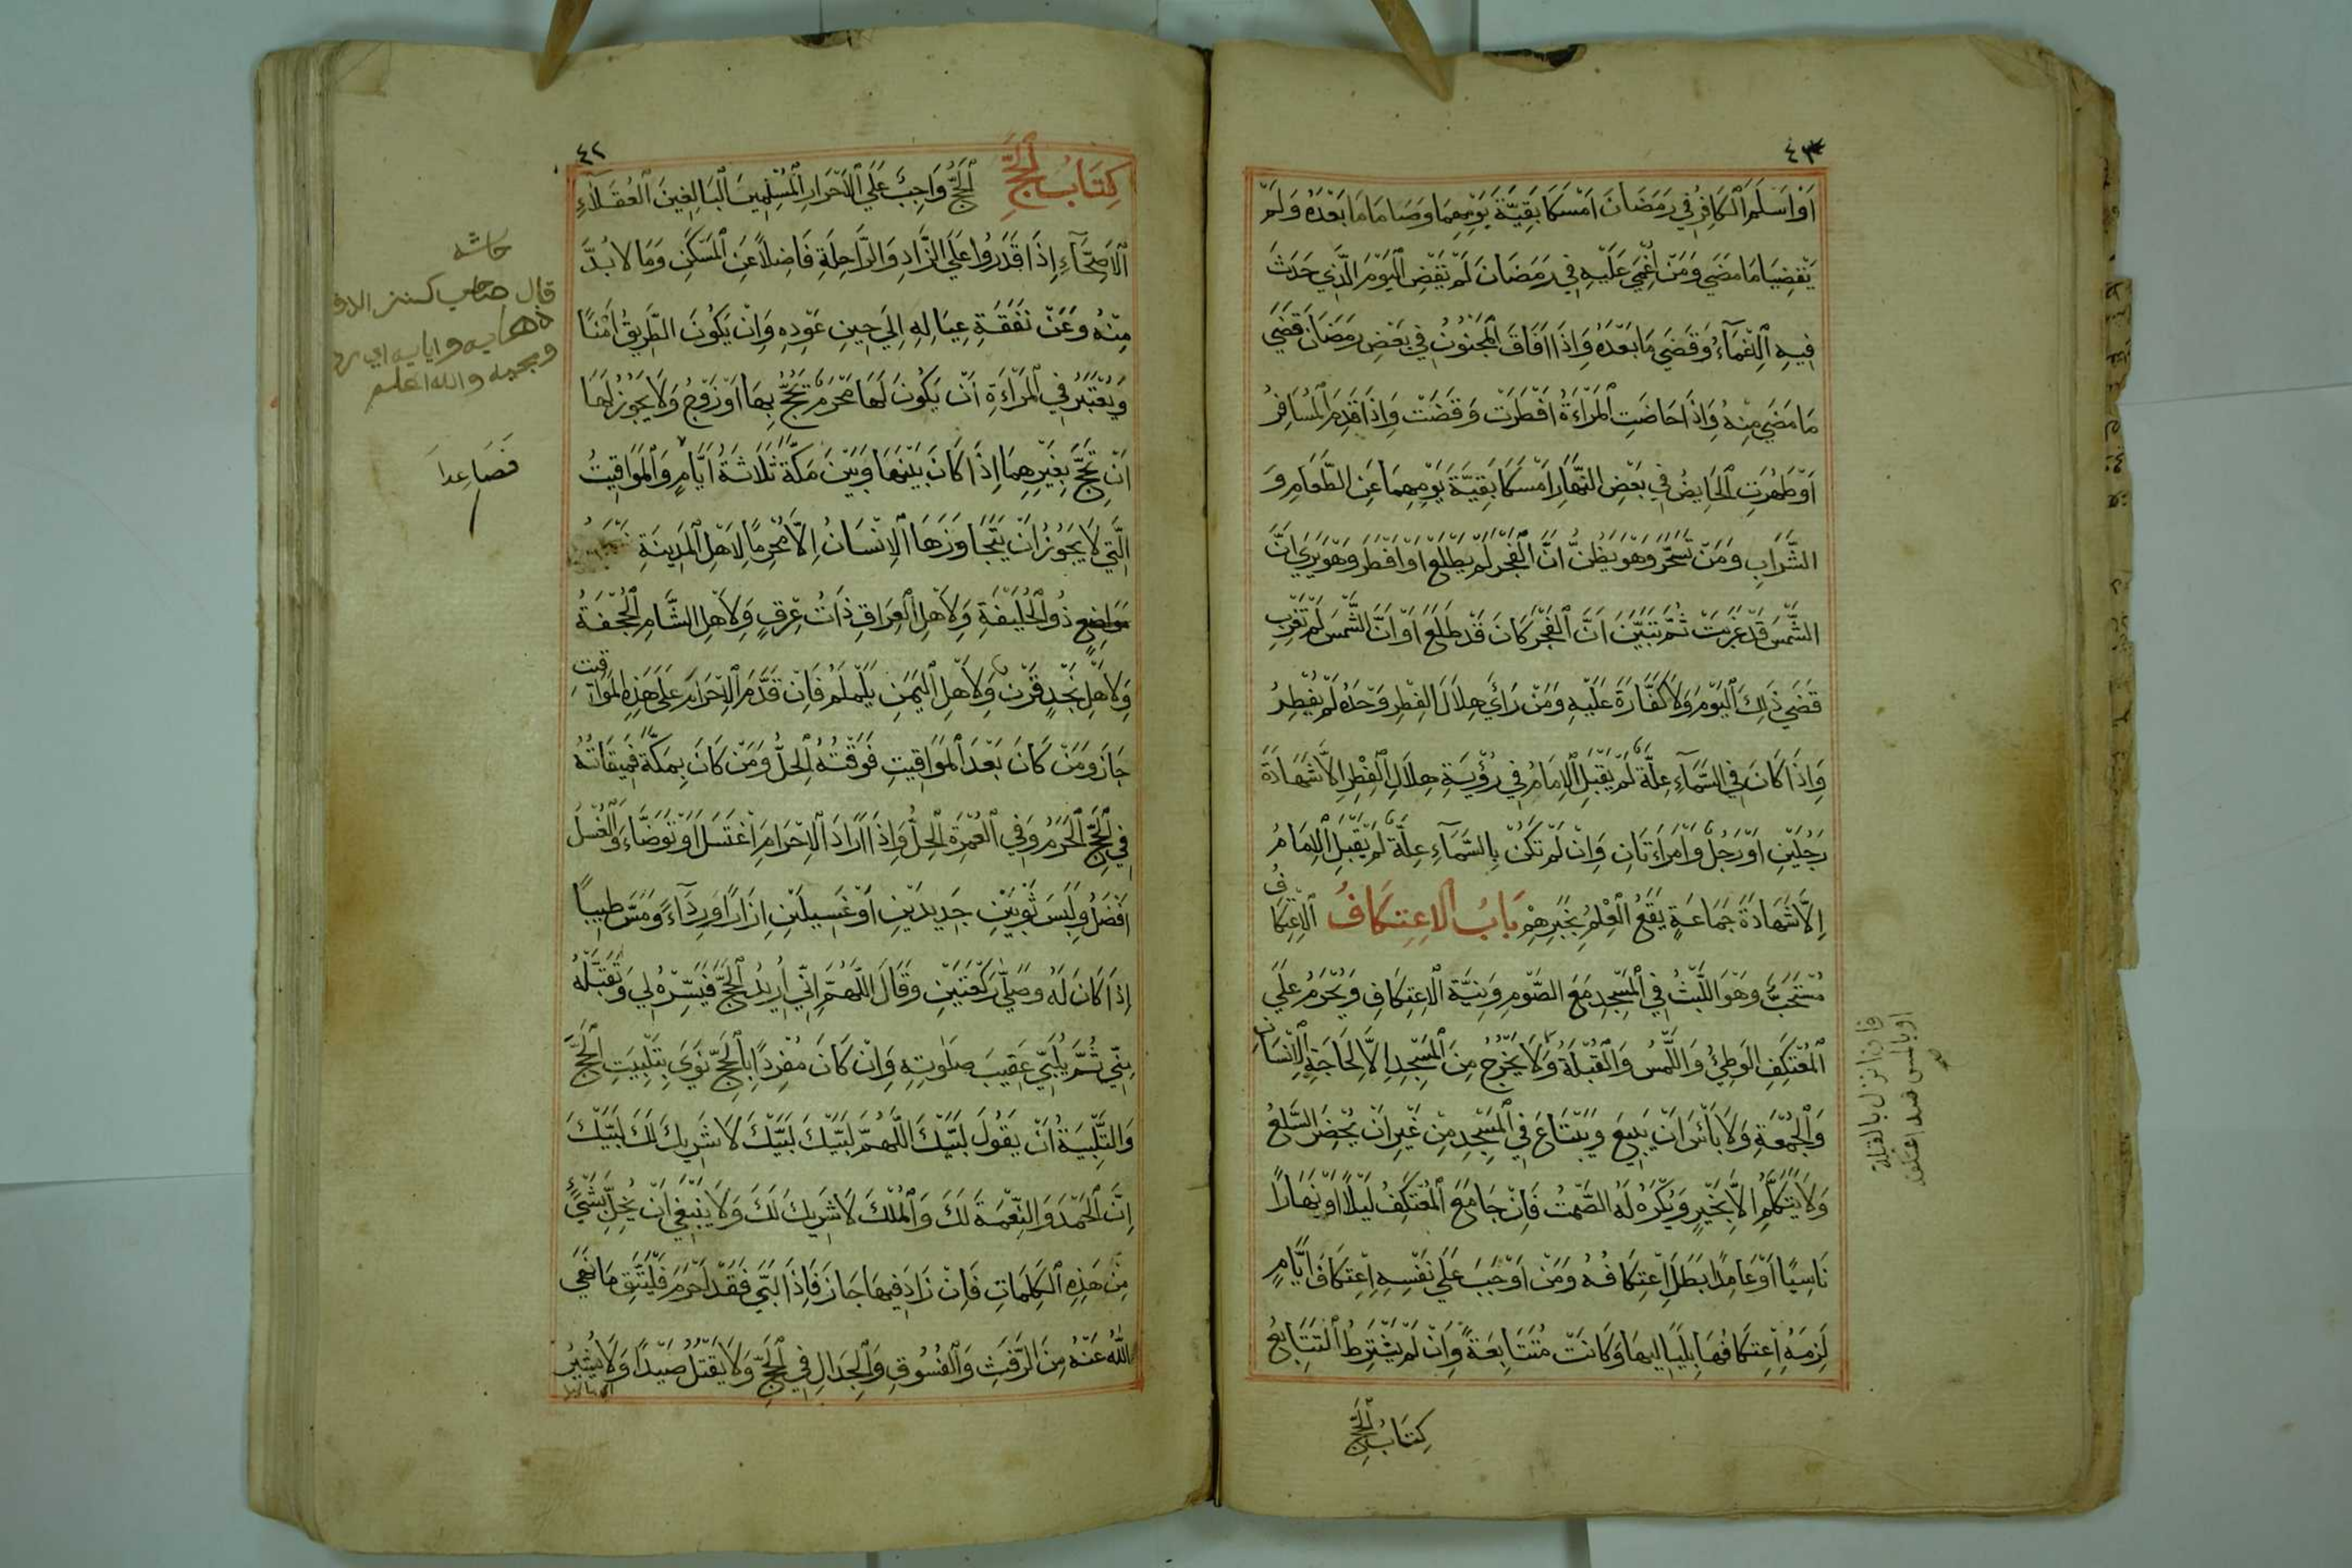 ٤٣
اَوْ اَسْلَمَ الْكَافِرُ فِي رَمَضَانَ اَمْسَكَا بَقِيَّةَ يَوْمِهِمَا وَصَامَا مَا بَعْدَهُ وَلَمْ
يَقْضِيَا مَا مَضَي وَمَنْ اُغْمِيَ عَلَيْهِ فِي رَمَضَانَ لَمْ يَقْضِ الْيَوْمَ الَّذِي حَدَثَ
فِيهِ الْاِغْمَآءُ وَقَضَي مَا بَعْدَهُ وَاِذَا اَفَاقَ الْمَجْنُونُ فِي بَعْضِ رَمَضَانَ قَضَي
مَا مَضَي مِنْهُ وَاِذَا حَاضَتِ الْمَرْاَةُ اَفْطَرَتْ وَقَضَتْ وَاِذَا قَدِمَ الْمُسَافِرُ
اَوْ طَهُرَتِ الْحَايِضُ فِي بَعْضِ النَّهَارِ اَمْسَكَا بَقِيَّةَ يَوْمِهِمَا عَنِ الطَّعَامِ وَ
الشَّرَابِ وَمَنْ تَسَحَّرَ وَهُوَ يَظُنُّ اَنَّ الْفَجْرَ لَمْ يَطْلَعْ اَوْ اَفْطَرَ وَهُوَ يَرَي اَنَّ
الشَّمْسَ قَدْ غَرَبَتْ ثُمَّ تَبَيَّنَ اَنَّ الْفَجْرَ كَانَ قَدْ طَلَعَ اَوْ اَنَّ الشَّمْسَ لَمْ تَغْرِبْ
قَضَي ذَلِكَ الْيَوْمَ وَلَا كَفَّارَةَ عَلَيْهِ وَمَنْ رَاَي هِلَالَ الْفِطْرِ وَحْدَهُ لَمْ يُفْطِرْ
وَاِذَا كَانَ فِي السَّمَآءِ عِلَّةٌ لَمْ يَقْبَلِ الْاِمَامُ فِي رُؤْيَةِ هِلَالِ الْفِطْرِ اِلَّا شَهَادَةَ
رَجُلَيْنِ اَوْ رَجُلٌ وَامْرَاَتَانِ وَاِنْ لَمْ تَكُنْ بِالسَّمَآءِ عِلَّةٌ لَمْ يَقْبَلِ الْاِمَامُ
اِلَّا شَهَادَةَ جَمَاعَةٍ يَقَعُ الْعِلْمُ بِخَبَرِهِمْ بَابُ الاِعْتِكَافُ اَلْاِعْتِكَافُ
مُسْتَحَبٌّ وَهُوَ اللَّبْثُ فِي الْمَسْجِدِ مَعَ الصَّوْمِ وَنِيَّةِ الْاِعْتِكَافِ وَيُحْرَمُ عَلَي
الْمُعْتَكِفِ الْوَطْيُ وَاللَّمْسُ وَالْقُبْلَةُ وَلَا يَخْرُجُ مِنَ الْمَسْجِدِ اِلَّا لِحَاجَةِ الْاِنْسَانِ
وَالْجُمْعَةِ وَلَا بَأْسَ اَنْ يَبِيعَ وَيَبْتَاعَ فِي الْمَسْجِدِ مِنْ غَيْرِ اَنْ يُحْضِرَ السِّلَعَ
وَلَا يَتَكَلَّمُ اِلَّا بِخَيْرٍ وَيُكْرَهُ لَهُ الصَّمْتُ فَاِنْ جَامَعَ الْمُعْتَكِفُ لَيْلًا اَوْ نَهَارًا
نَاسِيًا اَوْ عَامِدًا بَطَلَ اِعْتِكَافُهُ وَمَنْ اَوْجَبَ عَلَي نَفْسِهِ اِعْتِكَافَ اَيَّامٍ
لَزِمَهُ اِعْتِكَافُهَا بِلَيَالِيهَا وَكَانَتْ مُتَتَابِعَةً وَاِنْ لَمْ يَشْتَرِطُ التَّتَابِعُ
كِتَابُ الْحَجِّ
فان انزل بالقبلة
او بالمس فسد اعتكافه
٤٢
كِتَابُ الْحَجِّ اَلْحَجُّ وَاجِبٌ عَلَي الْاَحْرَارِ الْمُسْلِمِينَ الْبَالِغِينَ الْعُقَلَآءِ
الْاَصِحَّآءِ اِذَا قَدَرُوا عَلَي الزَّادِ وَالرَّاحِلَةِ فَاضِلًا عَنِ الْمَسْكَنِ وَمَا لَا بُدَّ
مِنْهُ وَعَنْ نَفَقَةِ عِيَالِهِ اِلَي حِينِ عَوْدِهِ وَاِنْ يَكُونَ الطَّرِيقُ اَمْنًا
وَيُعْتَبَرُ فِي الْمَرْاَةِ اَنْ يَكُونَ لَهَا مَحْرَمٌ تَحُجُّ بِهَا اَوْ زَوْجٌ وَلَا يَجُوزُ لَهَا
اَنْ تَحُجَّ بِغَيْرِهِمَا اِذَا كَانَ بَيْنَهَا وَبَيْنَ مَكَّةَ ثَلَاثَةُ اَيَّامٍ وَالْمَوَاقِيتُ
الَّتِي لَا يَجُوزُ اَنْ يَتَجَاوَزَهَا الْاِنْسَانُ اِلَّا مُحْرِمًا لِاَهْلِ الْمَدِينَةِ
مواضع ذُو الْحُلَيْفَةِ وَلِاَهْلِ الْعِرَاقِ ذَاتُ عِرْقٍ وَلِاَهْلِ الشَّامِ الْجُحْفَةُ
وَلِاَهْلِ نَجْدٍ قَرْنٌ وَلِاَهْلِ الْيَمَنِ يَلَمْلَمُ فَاِنْ قَدَّمَ الْاِحْرَامَ عَلَي هَذِهِ الْمَوَاقيت
جَازَ وَمَنْ كَانَ بَعْدَ الْمَوَاقِيتِ فَوَقْتُهُ الْحِلُّ وَمَنْ كَانَ بِمَكَّةَ فَمِيقَاتُهُ
فِي الْحَجِّ الْحَرَمُ وَفِي الْعُمْرَةِ الْحِلُّ وَاِذَا اَرَادَ الْاِحْرَامَ اغْتَسَلَ اَوْ تَوَضَّاءَ وَالْغُسْلُ
اَفْضَلُ وَلَبِسَ ثَوْبَيْنِ جَدِيدَيْنِ اَوْ غَسِيلَيْنِ اِزَارًا وَرِدَآءً وَمَسَّ طِيبًا
اِذَا كَانَ لَهُ وَصَلَّي رَكْعَتَيْنِ وَقَالَ اللَّهُمَّ اِنِّي اُرِيدُ الْحَجَّ فَيَسِّرْهُ لِي وَتَقَبَّلْهُ
مِنِّي ثُمَّ يُلَبِّي عَقِيبَ صَلٰوتِهِ وَاِنْ كَانَ مُفْرِدًا بِالْحَجِّ نَوَي بِتَلْبِيَتِ الْحَجَّ
وَالتَّلْبِيَةُ اَنْ يَقُولَ لَبَّيْكَ اللَّهُمَّ لَبَّيْكَ لَبَّيْكَ لَا شَرِيكَ لَكَ لَبَّيْكَ
اِنَّ الْحَمْدَ وَالنِّعْمَةَ لَكَ وَالْمُلْكَ لَا شَرِيكَ لَكَ وَلَا يَنْبَغِي اَنْ يُخِلَّ بِشَيْءٍ
مِنْ هَذِهِ الْكَلِمَاتِ فَاِنْ زَادَ فِيهَا جَازَ فَاِذَا لَبَّي فَقَدْ اَحْرَمَ فَلْيَتَّقِ مَا نَهَي
اللّٰهُ عَنْهُ مِنَ الرَّفَثِ وَالْفُسُوقِ وَالْجِدَالِ فِي الْحَجِّ وَلَا يَقْتُلُ صَيْدًا وَلَا يُشِيرُ
حاشيه
قال صاحب كنز
ذهابه وايابه اي
والله اعلم
فَصَاعِدا